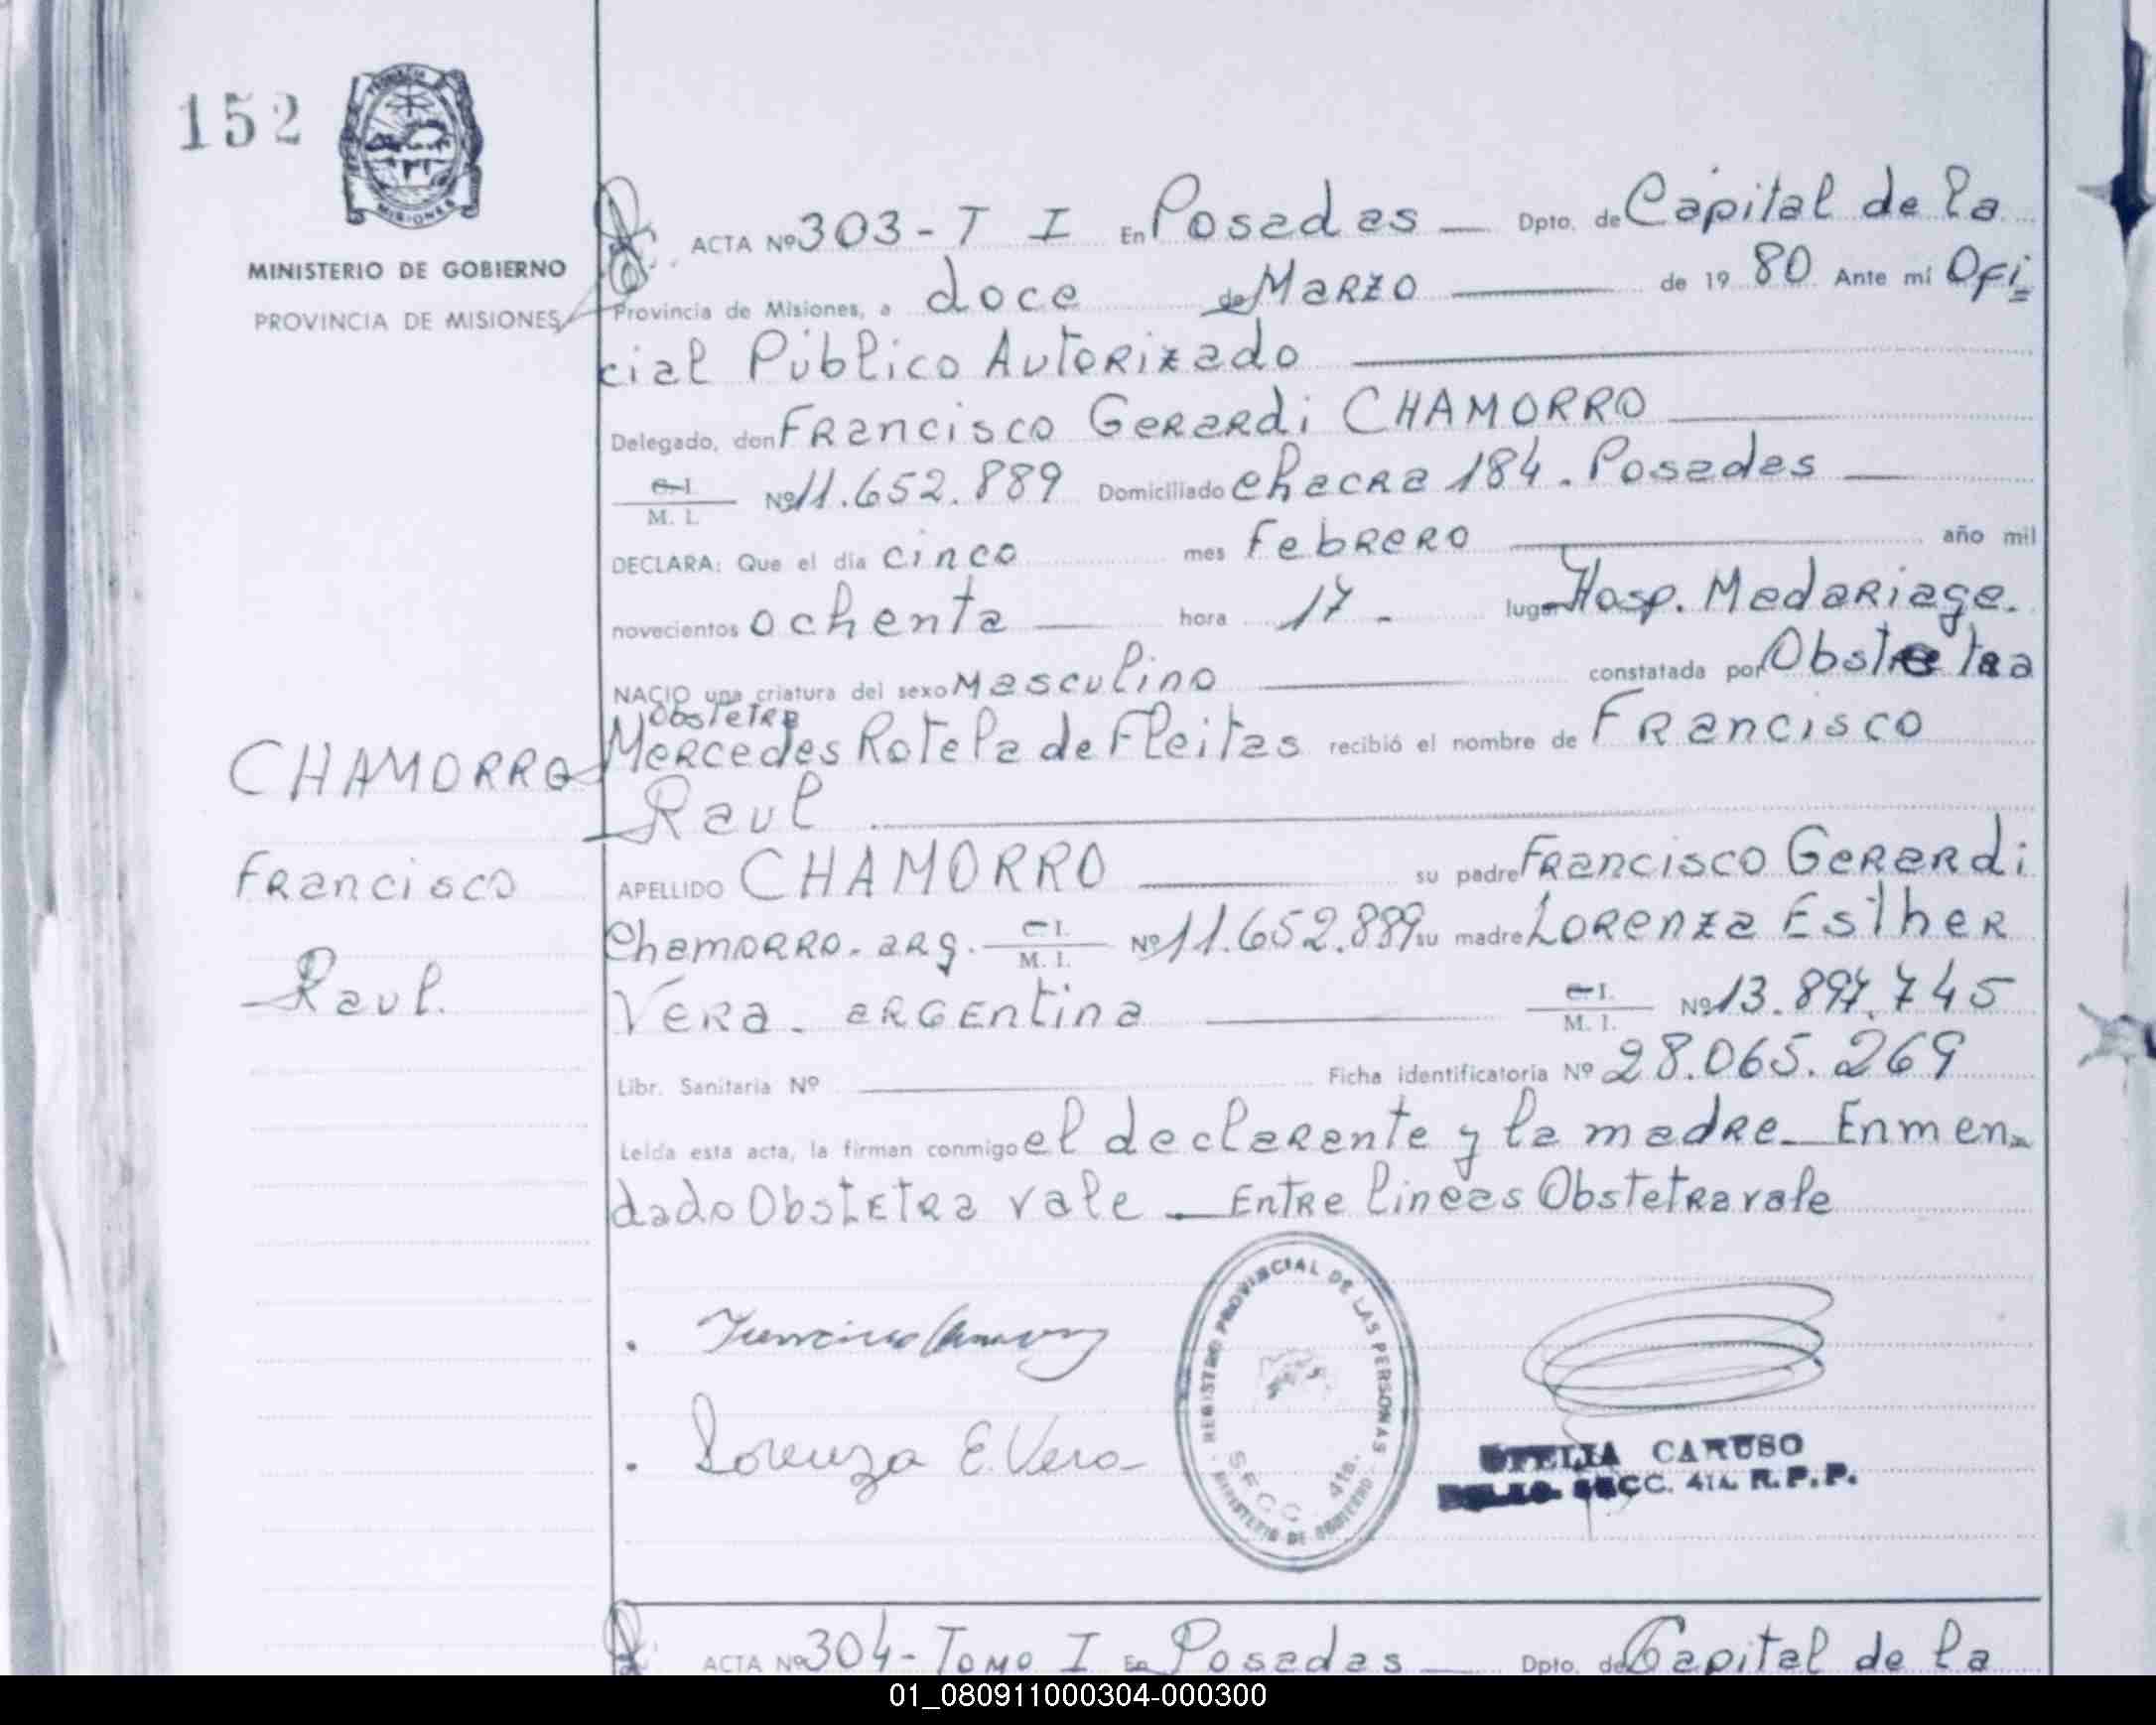 152
PROVINCIA DE
MISIONES
MINISTERIO DE GOBIERNO
PROVINCIA DE MISIONES
ACTA Nº 303 - T I En Posadas — Dpto. de Capital de la
Provincia de Misiones, a doce de Marzo de 19 80 Ante mí Ofi=
cial Público Autorizado
Delegado, don Francisco Gerardi CHAMORRO
C.I. M. I. Nº 11.652.889 Domiciliado chacra 184. Posadas —
DECLARA: Que el día cinco mes Febrero año mil
novecientos ochenta hora 17 - lugar Hosp. Madariaga.
NACIO una criatura del sexo Masculino constatada por Obstetra
Obstetra
Mercedes Rotela de Fleitas recibió el nombre de Francisco
CHAMORRO
Raul
Francisco
APELLIDO CHAMORRO su padre Francisco Gerardi
Chamorro. arg. C.I. M. I. Nº 11.652.889 su madre Lorenza Esther
Raul.
Vera. argentina C.I. M. I. Nº 13.897.745
Libr. Sanitaria Nº Ficha identificatoria Nº 28.065.269
Leída esta acta, la firman conmigo el declarante y la madre. Enmen=
dado Obstetra vale . Entre lineas Obstetra vale
Francisco Chamorro
Lorenza E. Vera
REGISTRO PROVINCIAL DE LAS PERSONAS
SECC. 4ta.
MINISTERIO DE GOBIERNO
OFELIA CARUSO
SECC. 4ta. R.P.P.
ACTA Nº 304 - Tomo I En Posadas — Dpto. de Capital de la
01_080911000304-000300